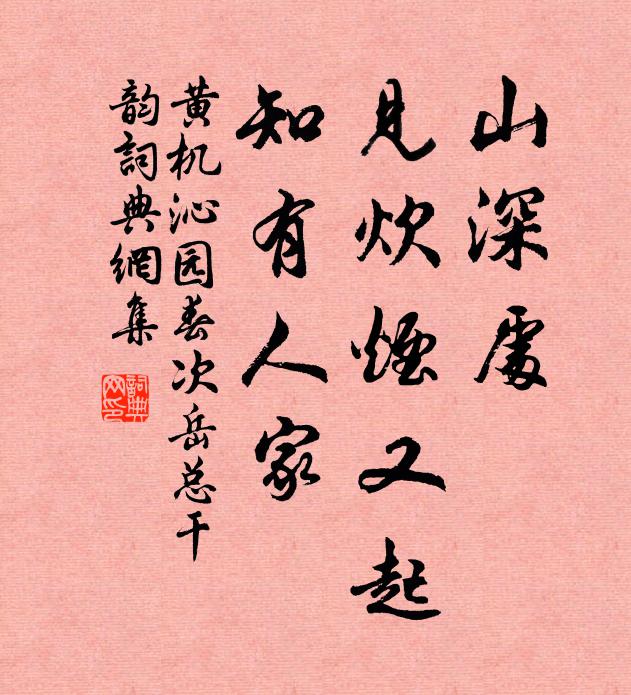 山深處
見炊煙又起
知有人家
黄机沁园春次岳总干
韵詞典網集
詞典
网印